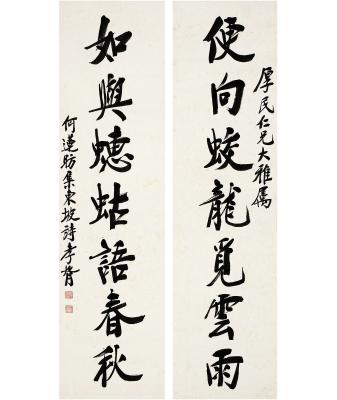 厚民仁兄大雅属
便向蛟龍覓雲雨
如與蟪蛄語春秋
何蓮舫集東坡詩孝胥